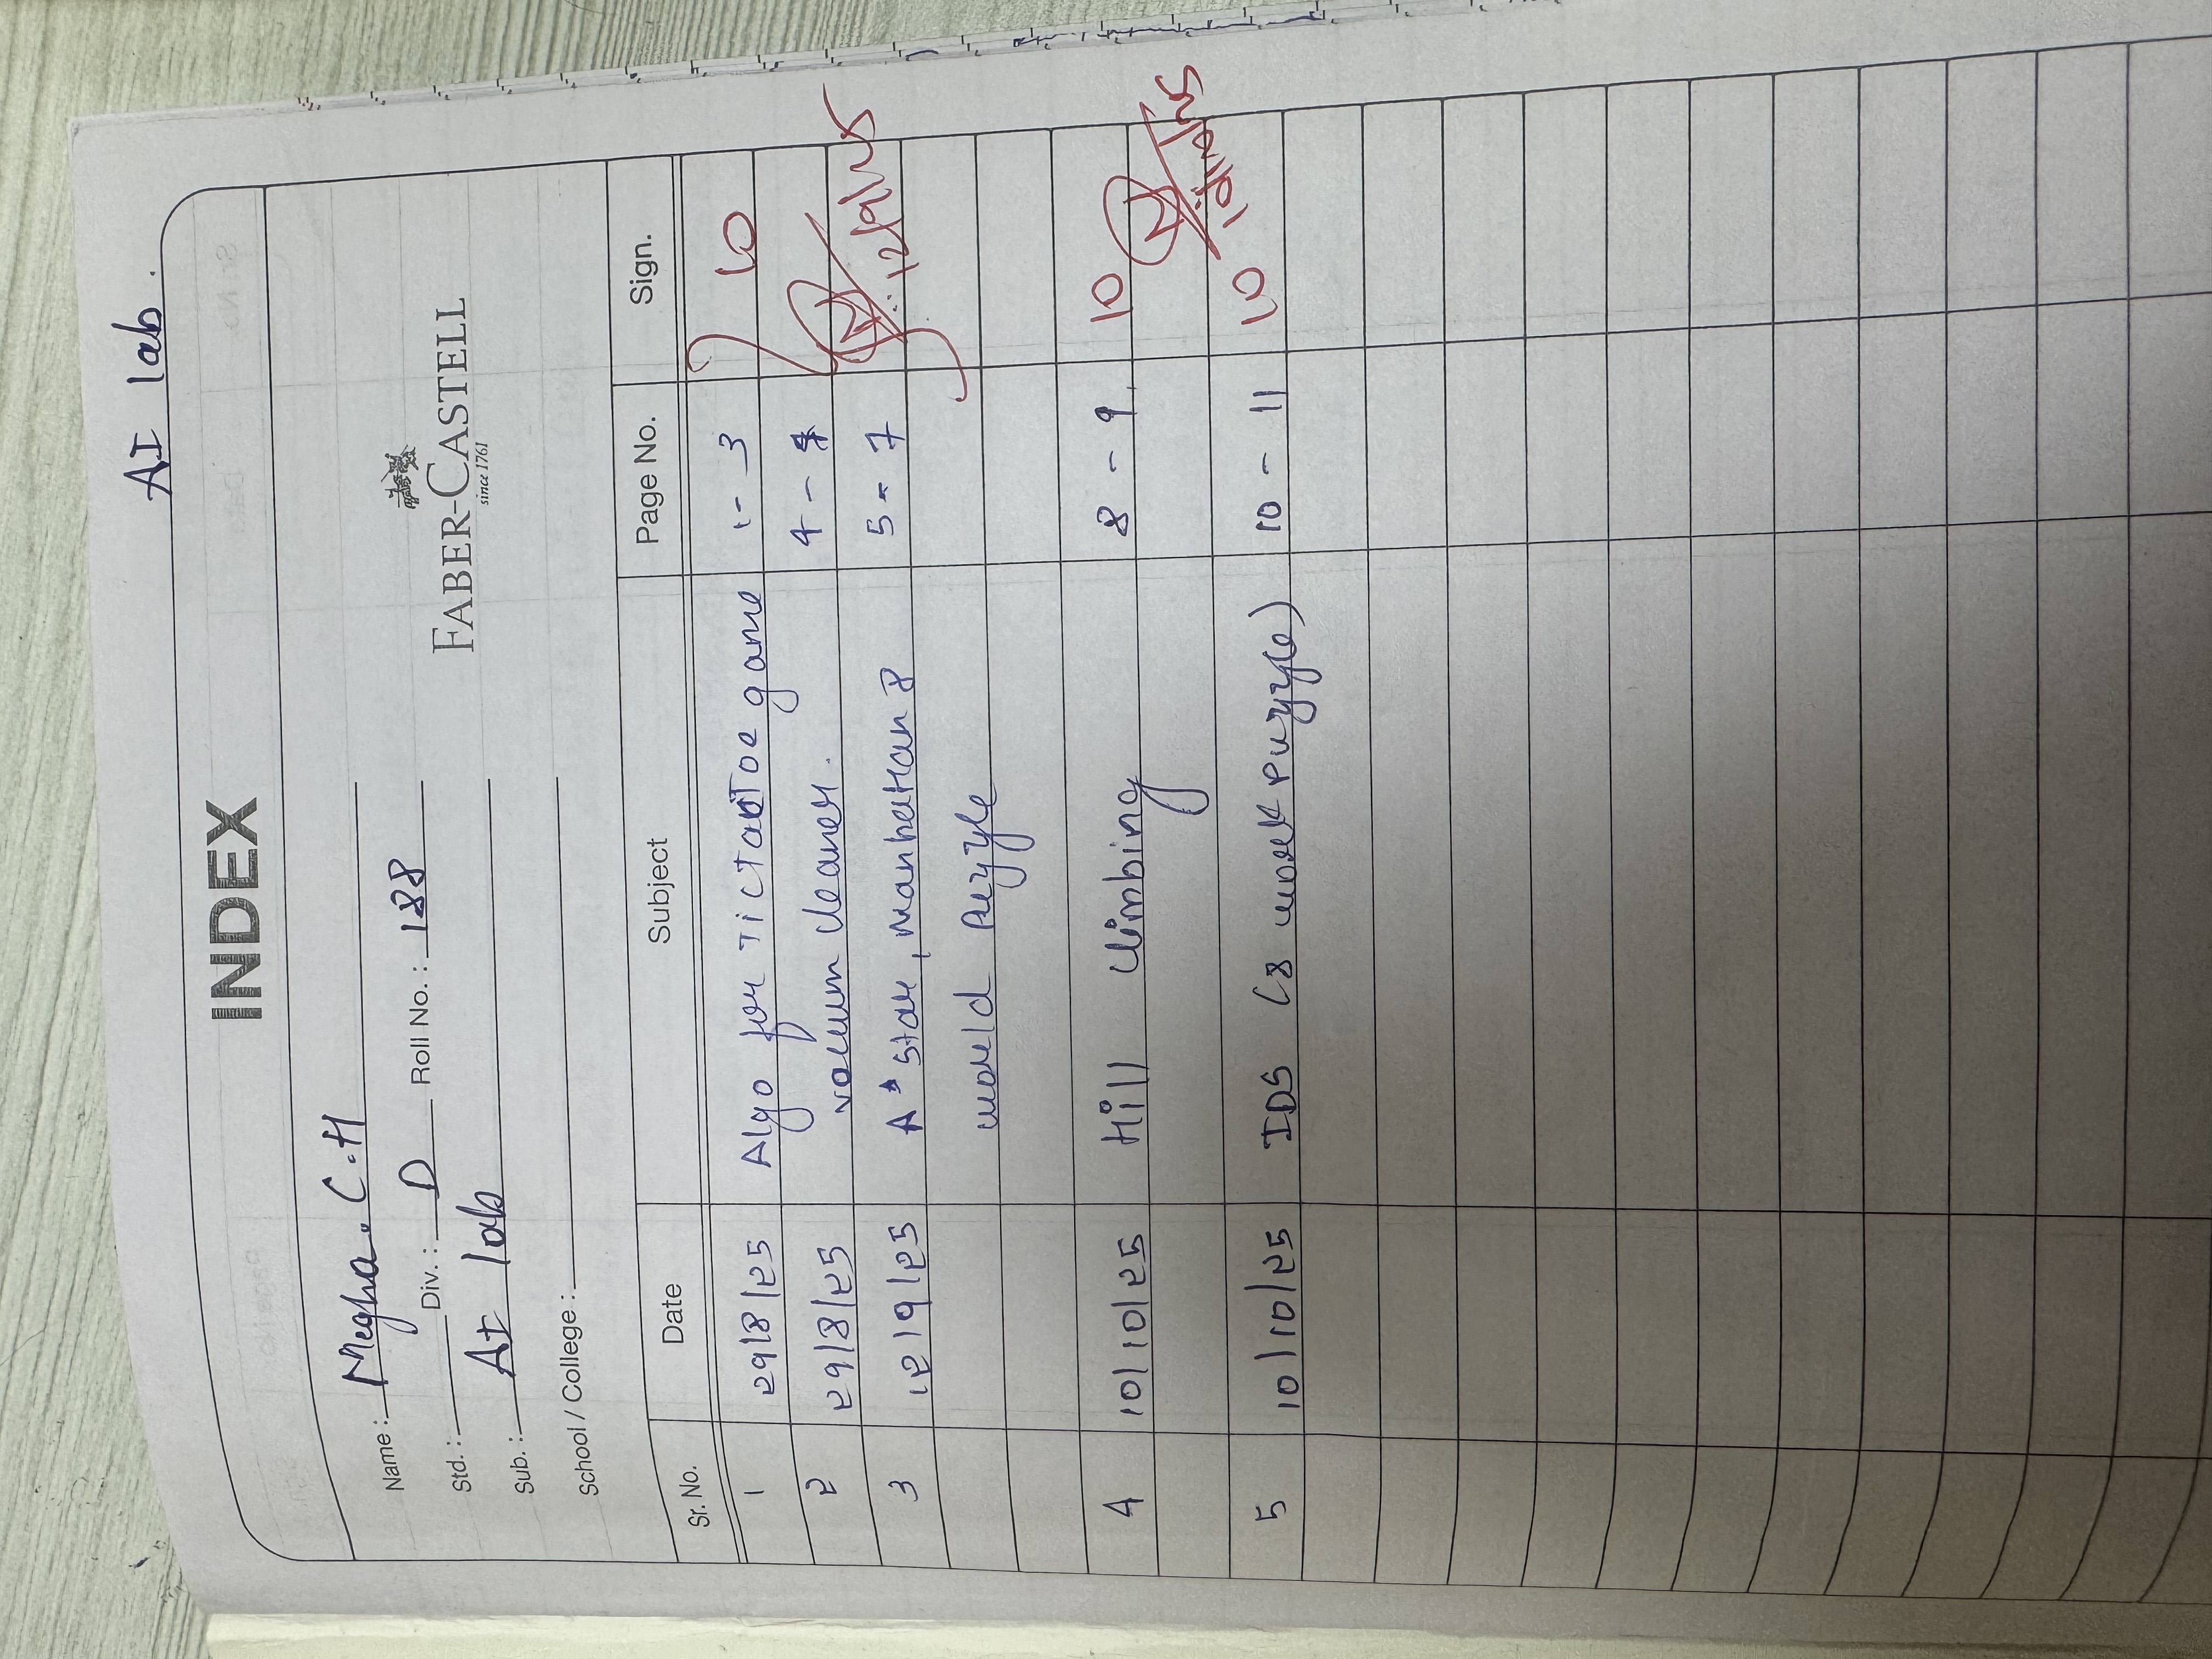 AI lab.
INDEX
Name : Megha. C.H
Std. : Div. : D Roll No. : 188
Sub. : AI lab
FABER-CASTELL
since 1761
School / College :
Sr. No. Date Subject Page No. Sign.
1 29/8/25 Algo for TicTacToe game 1- 3 10
2 29/8/25 vacuum cleaner. 4 - 4
3 12/9/25 A* star, Manhattan 8 5 - 7 12/9/25
world puzzle
4 10/10/25 Hill climbing 8 - 9. 10
10/10/25
5 10/10/25 IDS (8 work puzzle) 10 - 11 10